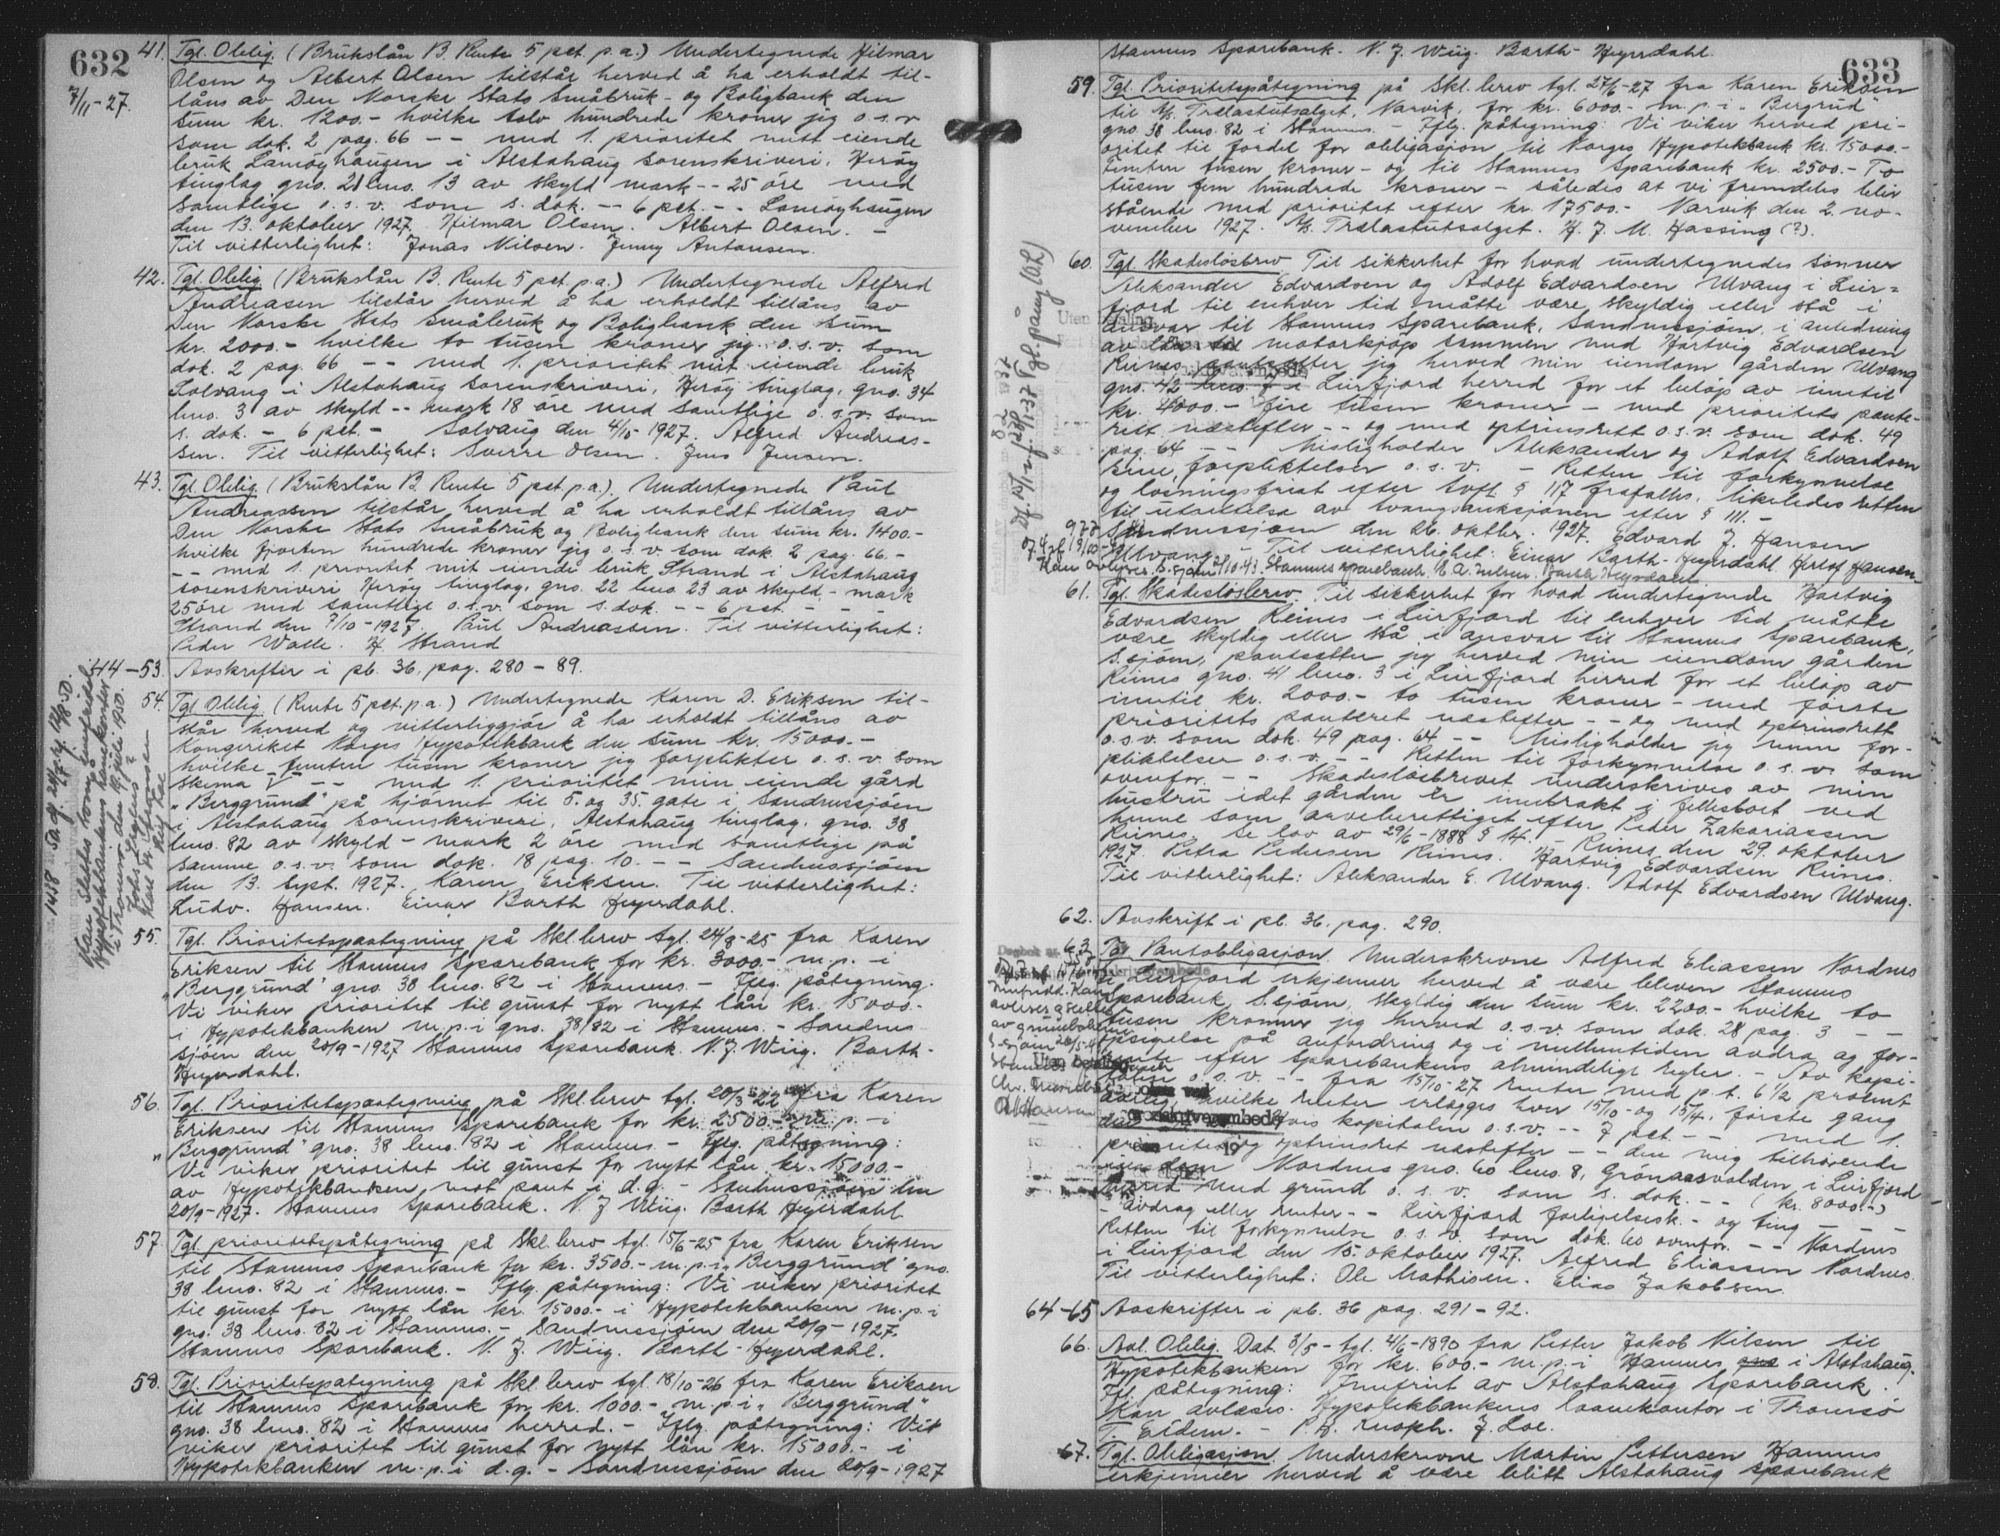 632
7/11-27.
41. Tgl. Oblig. (Brukslån B. Rente 5 pct. p.a.) Undertegnede Hilmar
Olsen og Albert Olsen tilstår herved å ha erholdt til-
låns av Den Norske Stats Småbruk- og Boligbank den
sum kr. 1200.- hvilke tolv hundrede kroner jeg o.s.v.
som dok. 2 pag. 66 -- med 1. prioritet mitt eiende
bruk Lamøyhaugen i Alstahaug sorenskriveri, Herøy
tinglag gno. 21 bno. 13 av skyld mark -- 25 öre med
samtlige o.s.v. som s. dok. -- 6 pct. -- Lamøyhaugen
den 13. oktober 1927. Hilmar Olsen. Albert Olsen. -
Til vitterlighet: Jonas Nilsen. Jenny Antonsen.
42. Tgl. Oblig. (Brukslån B. Rente 5 pct. p.a.) Undertegnede Alfred
Andreasen tilstår herved å ha erholdt tillåns av
Den Norske Stats Småbruk og Boligbank den sum
kr. 2000.- hvilke to tusen kroner jeg o.s.v. som
dok. 2 pag. 66 -- med 1. prioritet mitt eiende bruk
Solvang i Alstahaug sorenskriveri, Herøy tinglag, gno. 34
bno. 3 av skyld -- mark 18 öre med samtlige o.s.v. som
s. dok. - 6 pct. - Solvang den 4/10 1927. Alfred Andreas-
sen. Til vitterlighet: Sverre Olsen. Jens Jensen.
43. Tgl. Oblig. (Brukslån B Rente 5 pct. p.a.). Undertegnede Paul
Andreassen tilstår herved å ha erholdt tillåns av
Den Norske Stats Småbruk og Boligbank den sum kr. 1400.-
hvilke fjorten hundrede kroner jeg o.s.v. som dok. 2 pag. 66.-
-- med 1. prioritet mit eiende bruk Strand i Alstahaug
sorenskriveri Herøy tinglag, gno. 22 bno 23 av skyld - mark
25 öre med samtlige o.s.v. som s. dok. -- 6 pct. - - -
Strand den 7/10-1927. Paul Andreassen. Til vitterlighet:
Peder Walle. H Strand
44-53. Avskrifter i pb. 36, pag. 280-89.
54. Tgl Oblig (Rente 5 pct. p.a.) Undertegnede Karen D. Eriksen til-
står herved og vitterliggjør å ha erholdt tillåns av
Kongeriket Norges Hypotekbank den sum kr. 15000.-
hvilke femten tusen kroner jeg forplikter o.s.v. som
skema V -- med 1. prioritet min eiende gård
"Berggrund" på hjørnet til 5. og 35. gate i Sandnessjøen
i Alstahaug sorenskriveri, Alstahaug tinglag, gno. 38
bno. 82 av skyld - mark 2 öre med samtlige på
samme o.s.v. som dok. 18 pag. 10. -- Sandnessjøen
den 13. sept. 1927. Karen Eriksen. Til vitterlighet:
Ludv. Hansen. Einar Barth Heyerdahl.
55. Tgl. Prioritetspaategning på Skl.brev tgl. 24/8-25 fra Karen
Eriksen til Stamnes Sparebank for kr. 3000.- m.p. i
"Berggrund" gno. 38 bno. 82 i Stamnes. - Iflg. påtegning:
Vi viker prioritet til gunst for nytt lån kr. 15000.-
i Hypotekbanken m.p. i gno. 38/82 i Stamnes. - Sandnes-
sjøen den 20/9-1927 Stamnes Sparebank. N.J. Wiig. Barth-
Heyerdahl.
56. Tgl. Prioritetspaategning på Skl.brev tgl. 20/3-22 fra Karen
Eriksen til Stamnes Sparebank for kr. 2500.- m.p. i
"Berggrund" gno. 38 bno. 82 i Stamnes - Iflg. påtegning:
Vi viker prioritet til gunst for nytt lån kr. 15000.-
av Hypotekbanken mot pant i d.g. - Sandnessjøen den
20/9-1927. Stamnes Sparebank. N. J Wiig. Barth Heyerdahl
57. Tgl prioritetspåtegning på Skl.brev tgl. 15/6-25 fra Karen Eriksen
til Stamnes Sparebank for kr. 3500.- m.p. i "Berggrund" gno.
38 bno. 82 i Stamnes. - Iflg. påtegning: Vi viker prioritet
til gunst for nytt lån kr. 15000.- i Hypotekbanken m.p. i
gno. 38 bno. 82 i Stamnes. - Sandnessjøen den 20/9-1927.
Stamnes Sparebank. N. J. Wiig. Barth-Heyerdahl.
58. Tgl. Prioritetspategning på Skl.brev tgl. 18/10-26 fra Karen Eriksen
til Stamnes Sparebank for kr. 1000.- m.p. i "Berggrund"
gno. 38 bno. 82 i Stamnes herred. - Iflg. påtegning: Vi
viker prioritet til gunst for nytt lån kr. 15000.- i
Hypotekbanken m.p. i d.g. - Sandnessjøen den 20/9-1927
633
Stamnes Sparebank. N. J. Wiig. Barth-Heyerdahl.
59. Tgl. Prioritetspåtegning på Skl.brev tgl. 27/6-27 fra Karen Eriksen
til A/s. Trelastutsalget, Narvik, for kr. 6000.- m.p. i "Bergrud"
gno. 38 bno. 82 i Stamnes. - Iflg. påtegning: Vi viker herved pri-
oritet til fordel for obligasjon til Norges Hypotekbank kr. 15000.-
Femten tusen kroner - og til Stamnes Sparebank kr. 2500.- To
tusen fem hundrede kroner - således at vi fremdeles blir
stående med prioritet efter kr. 17500.- Narvik den 2. no-
vember 1927. A/s. Trælastutsalget. H. J. M. Hassing (?).
60. Tgl. Skadeslösbrev Til sikkerhet for hvad undertegnedes sønner
Aleksander Edvardsen og Adolf Edvardsen Ulvang i Leir-
fjord til enhver tid måtte være skyldig eller stå i
ansvar til Stamnes Sparebank, Sandnessjøen, i anledning
av lån til motorkjøp sammen med Hartvig Edvardsen
Reines pantsetter jeg herved min eiendom gården Ulvang
gno. 42 bno. 1 i Leirfjord herred for et beløp av inntil
kr. 4000.- fire tusen kroner - med prioritets pante-
rett næstefter -- og med optrinsrett o.s.v. som dok. 49
pag. 64 -- Misligholder Aleksander og Adolf Edvardsen
sine forpliktelser o.s.v. - Retten til forkynnelse
og løsningsfrist efter tvfl. § 117 frafalles, likeledes retten
til utsettelse av tvangsauksjonen efter § 111. -
Sandnessjøen den 26. oktbr. 1927. Edvard J. Hansen
Ulvang. - Til vitterlighet: Einar Barth-Heyerdahl
61. Tgl. Skadeslösbrev Til sikkerhet for hvad undertegnede Hartvig
Edvardsen Reines i Leirfjord til enhver tid måtte
være skyldig eller stå i ansvar til Stamnes Sparebank,
S.sjøen, pantsetter jeg herved min eiendom gården
Reines gno. 41 bno. 3 i Leirfjord herred for et beløp av
inntil kr. 2000.- to tusen kroner - med første
prioritets panteret næstefter -- og med optrinsrett
o.s.v. som dok. 49 pag. 64 -- Misligholder jeg mine for-
pliktelser o.s.v. -- Retten til forkynnelse o.s.v. som
ovenfor. -- Skadeslösbrevet underskrives av min
hustru idet gården er innbrakt i fellesboet ved
henne som arveberettiget efter Peder Zakariassen
Reines. Se lov av 29/6-1888 § 14. - Reines den 29. oktober
1927. Petra Pedersen Reines. Hartvig Edvardsen Reines.
Til vitterlighet: Aleksander E. Ulvang. Adolf Edvardsen Ulvang.
62. Avskrift i pb. 36, pag. 290.
63 Tgl Pantobligasjon. Underskrevne Alfred Eliassen Nordnes
i Leirfjord erkjenner herved å være bleven Stamnes
Sparebank, S.sjøen, skyldig den sum kr. 2200.- hvilke to
tusen kroner jeg herved o.s.v. som dok. 28 pag. 3 - -
opsigelse på anfordring og i mellemtiden avdra og for-
rente efter Sparebankens almindelige regler. - Av kapi-
talen o.s.v. -- fra 15/10-27 renter med p.t. 6 1/2 procent
årlig, hvilke renter erlægges hver 15/10- og 15/4, første gang
kapitalen o.s.v. -- 7 pct. -- med 1.
prioritet og optrinsret næstefter -- den mig tilhørende
eiendom Nordnes gno. 60 bno. 8, Grönaasvolden, i Leirfjord
herred med grund o.s.v. som s. dok. -- (kr. 8000.-)
- avdrag eller renter -- Leirfjord forligelsesk. - og ting - - -
Retten til forkynnelse o.s.v. som dok. 60 ovenfor. -- Nordnes
i Leirfjord den 15. oktober 1927. Alfred Eliassen Nordnes.
Til vitterlighet: Ole Mathisen. Elias Jakobsen.
64-65 Avskrifter i pb. 36 pag. 291-92.
66. Avl. Oblig. Dat. 3/5- tgl. 4/6-1890 fra Petter Jakob Nilsen til
Hypotekbanken for kr. 600.- m.p. i Hamnes i Alstahaug.
Ifl. påtegning: Innfriet av Alstahaug Sparebank.
Kan avlæses. Hypotekbankens laanekontor i Tromsø
T. Eidem. - P.H. Knoph. J. Loe.
67. Tgl. Obligasjon. Underskrevne Martin Pettersen Hamnes
erkjenner herved å være blitt Alstahaug Sparebank